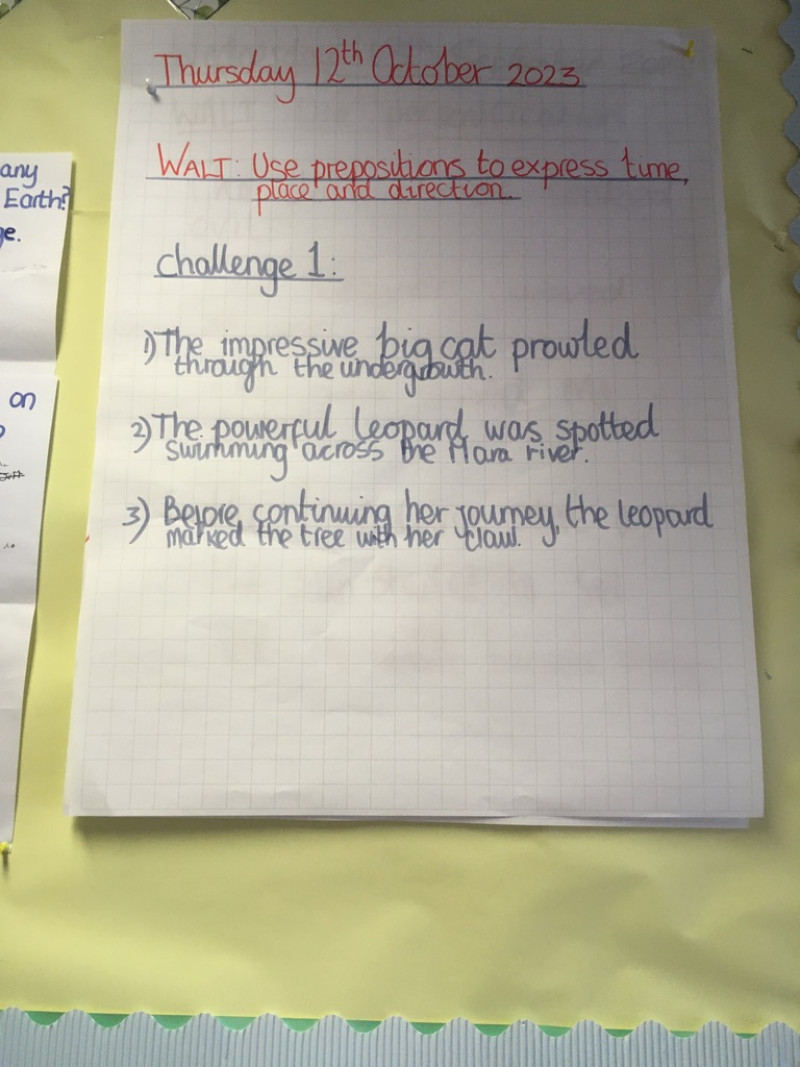 any
Earth?
ge.
on
Thursday 12th October 2023
WALT: Use prepositions to express time,
place and direction.
Challenge 1:
1) The impressive big cat prowled
through the undergrowth.
2) The powerful leopard was spotted
swimming across the Mara river.
3) Before continuing her journey, the leopard
marked the tree with her claw.